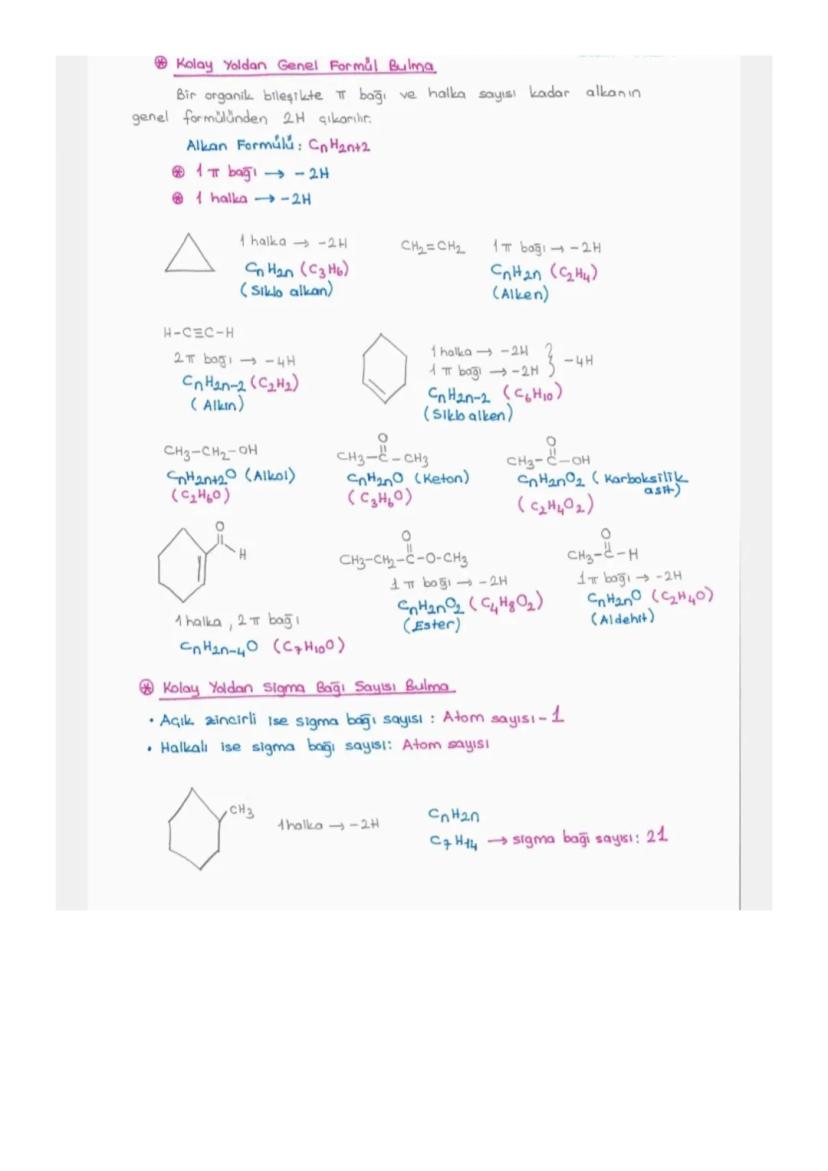 ⊛ Kolay Yoldan Genel Formül Bulma
Bir organik bileşikte π bağı ve halka sayısı kadar alkanın
genel formülünden 2H çıkarılır.
Alkan Formülü: CnH2n+2
⊛ 1 π bağı → -2H
⊛ 1 halka → -2H
1 halka → -2H
CnH2n (C3H6)
(Siklo alkan)
CH2=CH2 1π bağı → -2H
CnH2n (C2H4)
(Alken)
H-C≡C-H
2π bağı → -4H
CnH2n-2 (C2H2)
(Alkin)
1 halka → -2H
1 π bağı → -2H } -4H
CnH2n-2 (C6H10)
(Siklo alken)
CH3-CH2-OH
CnH2n+2O (Alkol)
(C2H6O)
O
CH3-C-CH3
CnH2nO (Keton)
(C3H6O)
O
CH3-C-OH
CnH2nO2 (Karboksilik
asit)
(C2H4O2)
O
H
1 halka, 2π bağı
CnH2n-4O (C7H10O)
O
CH3-CH2-C-O-CH3
1 π bağı → -2H
CnH2nO2 (C4H8O2)
(Ester)
O
CH3-C-H
1π bağı → -2H
CnH2nO (C2H4O)
(Aldehit)
⊛ Kolay Yoldan Sigma Bağı Sayısı Bulma
• Açık zincirli ise sigma bağı sayısı : Atom sayısı-1
• Halkalı ise sigma bağı sayısı: Atom sayısı
CH3
1halka → -2H
CnH2n
C7H14 → sigma bağı sayısı: 21